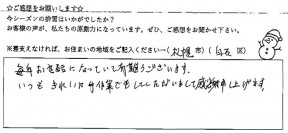 ☆ご感想をお願いします☆
今シーズンの除雪はいかがでしたか？
お客様の声が、私たちの原動力になっています。ぜひ、ご感想をお聞かせ下さい。
※差支えなければ、お住まいの地域をご記入ください→（札幌市）（白石区）
毎年お世話になっていて有難うございます。
いつもきれいに作業をしていただいまして感謝申し上げます